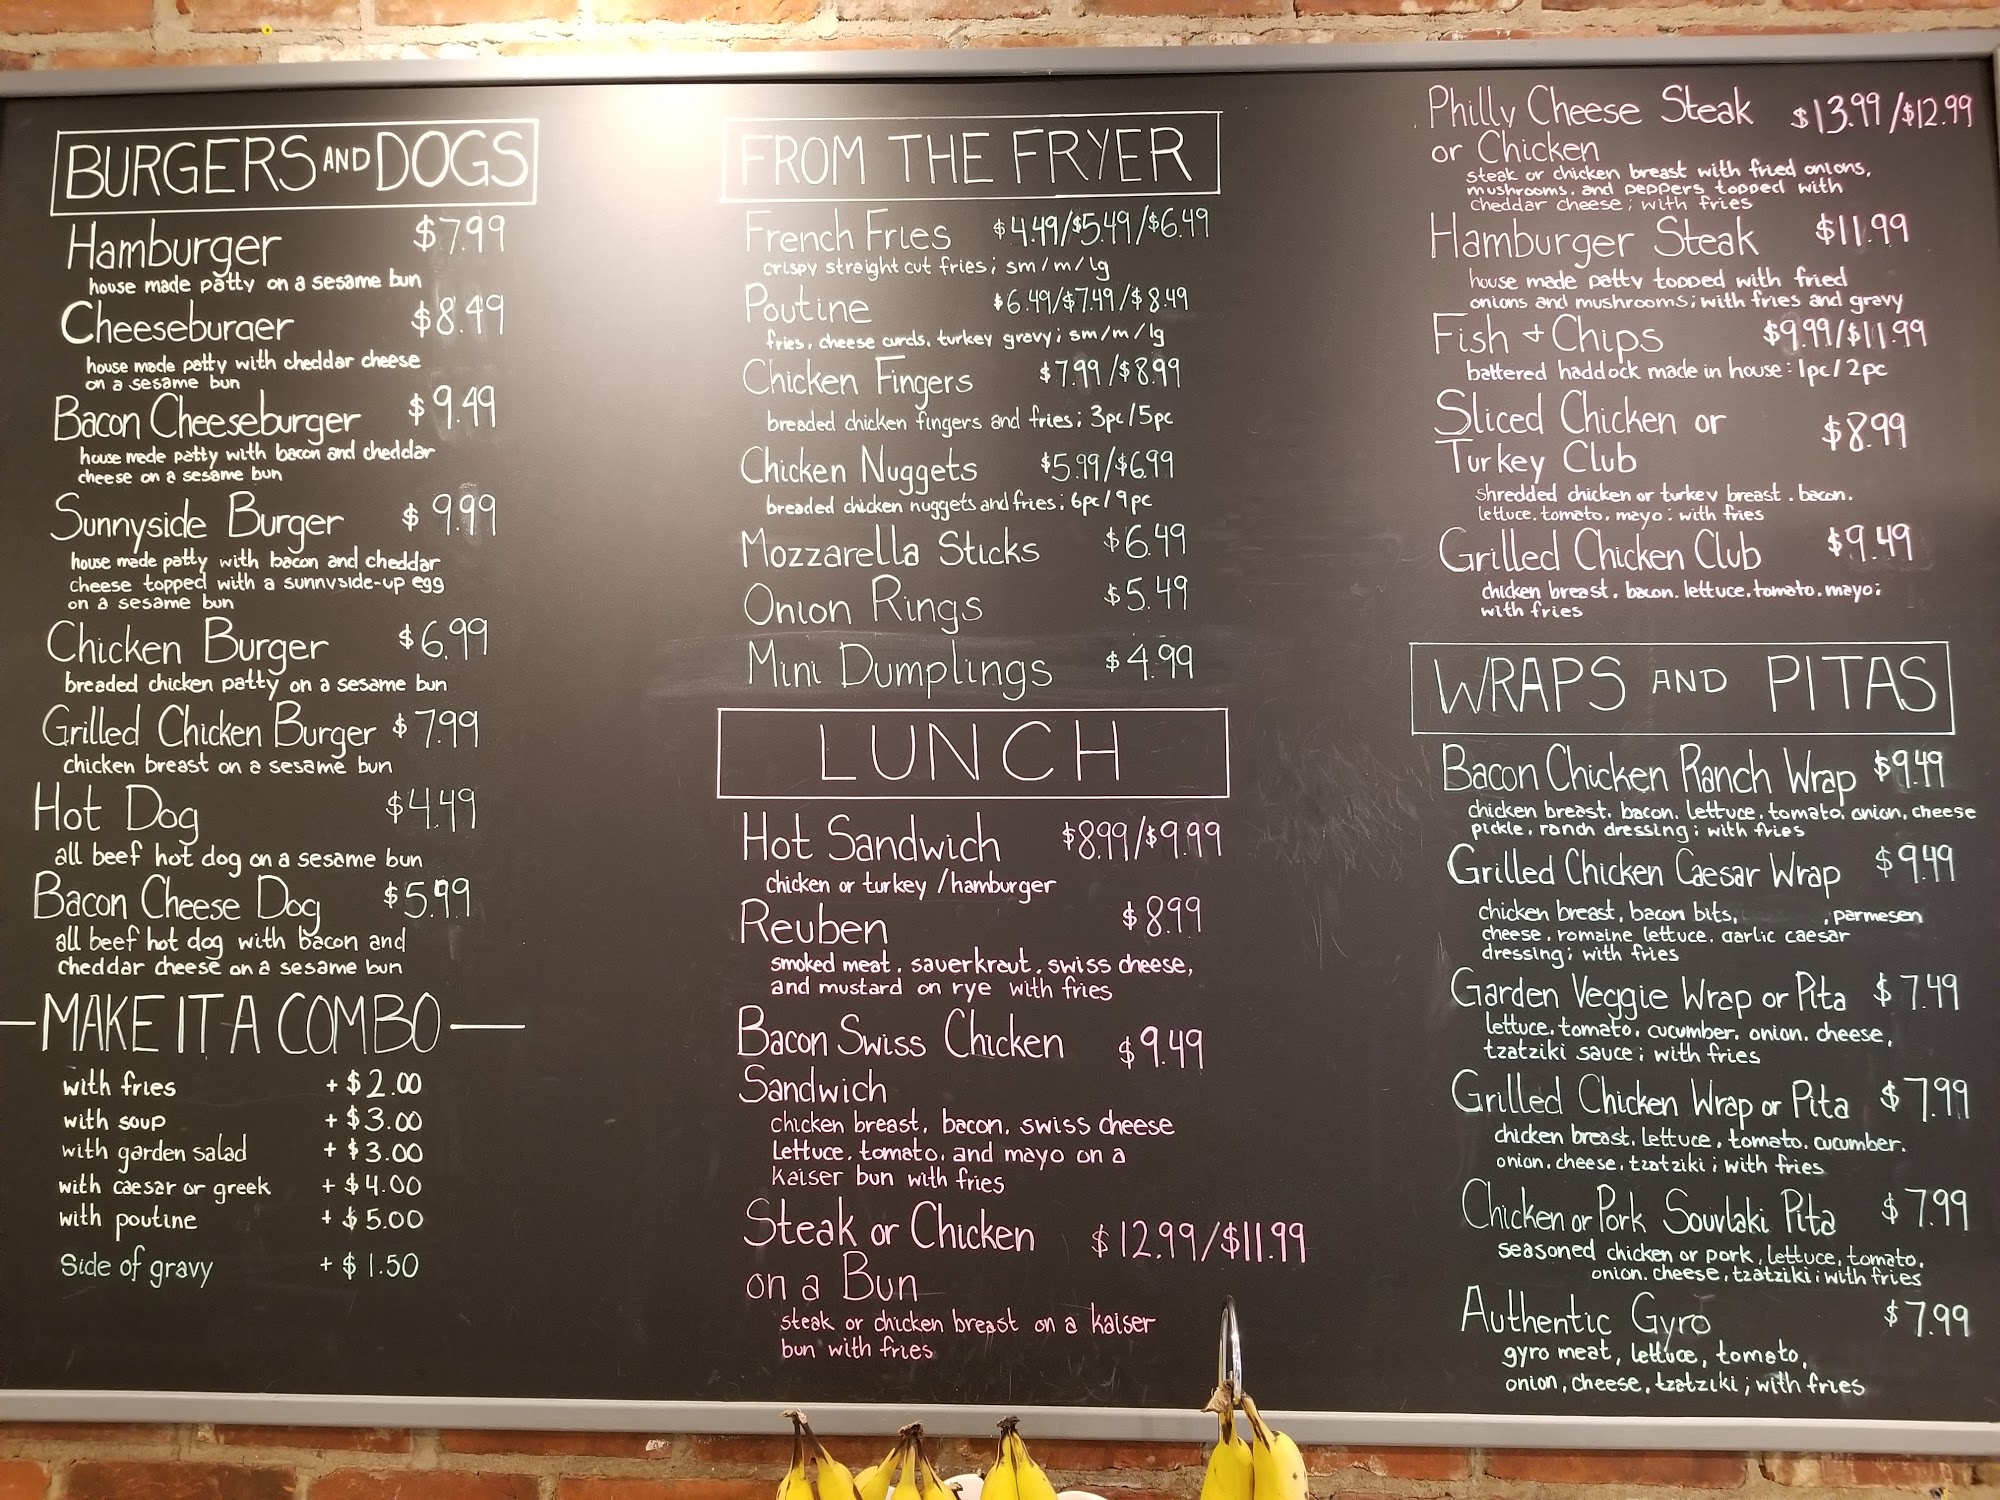 BURGERS AND DOGS
Hamburger $7.99
house made patty on a sesame bun
Cheeseburger $8.49
house made patty with cheddar cheese
on a sesame bun
Bacon Cheeseburger $9.49
house made patty with bacon and cheddar
cheese on a sesame bun
Sunnyside Burger $9.99
house made patty with bacon and cheddar
cheese topped with a sunnyside-up egg
on a sesame bun
Chicken Burger $6.99
breaded chicken patty on a sesame bun
Grilled Chicken Burger $7.99
chicken breast on a sesame bun
Hot Dog $4.49
all beef hot dog on a sesame bun
Bacon Cheese Dog $5.99
all beef hot dog with bacon and
cheddar cheese on a sesame bun
—MAKE IT A COMBO—
with fries +$2.00
with soup +$3.00
with garden salad +$3.00
with caesar or greek +$4.00
with poutine +$5.00
Side of gravy +$1.50
FROM THE FRYER
French Fries $4.49/$5.49/$6.49
crispy straight cut fries; sm/m/lg
Poutine $6.49/$7.49/$8.49
fries, cheese curds, turkey gravy; sm/m/lg
Chicken Fingers $7.99/$8.99
breaded chicken fingers and fries; 3pc/5pc
Chicken Nuggets $5.99/$6.99
breaded chicken nuggets and fries; 6pc/9pc
Mozzarella Sticks $6.49
Onion Rings $5.49
Mini Dumplings $4.99
LUNCH
Hot Sandwich $8.99/$9.99
chicken or turkey/hamburger
Reuben $8.99
smoked meat, sauerkraut, swiss cheese,
and mustard on rye with fries
Bacon Swiss Chicken $9.49
Sandwich
chicken breast, bacon, swiss cheese
lettuce, tomato, and mayo on a
kaiser bun with fries
Steak or Chicken $12.99/$11.99
on a Bun
steak or chicken breast on a kaiser
bun with fries
Philly Cheese Steak $13.99/$12.99
or Chicken
steak or chicken breast with fried onions,
mushrooms, and peppers topped with
cheddar cheese; with fries
Hamburger Steak $11.99
house made patty topped with fried
onions and mushrooms; with fries and gravy
Fish + Chips $9.99/$11.99
battered haddock made in house: 1pc/2pc
Sliced Chicken or $8.99
Turkey Club
shredded chicken or turkey breast, bacon,
lettuce, tomato, mayo; with fries
Grilled Chicken Club $9.49
chicken breast, bacon, lettuce, tomato, mayo;
with fries
WRAPS AND PITAS
Bacon Chicken Ranch Wrap $9.49
chicken breast, bacon, lettuce, tomato, onion, cheese
pickle, ranch dressing; with fries
Grilled Chicken Caesar Wrap $9.49
chicken breast, bacon bits, , parmesen
cheese, romaine lettuce, garlic caesar
dressing; with fries
Garden Veggie Wrap or Pita $7.49
lettuce, tomato, cucumber, onion, cheese,
tzatziki sauce; with fries
Grilled Chicken Wrap or Pita $7.99
chicken breast, lettuce, tomato, cucumber,
onion, cheese, tzatziki; with fries
Chicken or Pork Souvlaki Pita $7.99
seasoned chicken or pork, lettuce, tomato,
onion, cheese, tzatziki; with fries
Authentic Gyro $7.99
gyro meat, lettuce, tomato,
onion, cheese, tzatziki; with fries